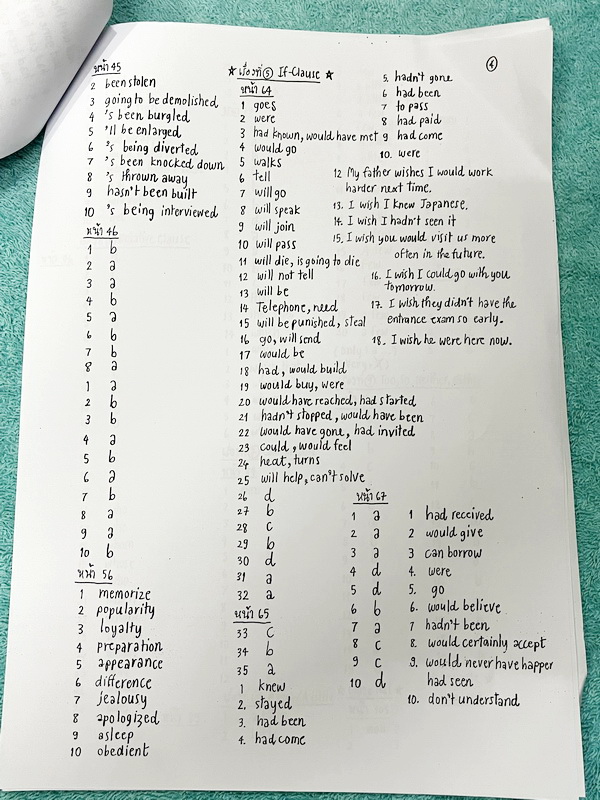 หน้า 45
2 been stolen
3 going to be demolished
4 's been burgled
5 'll be enlarged
6 's being diverted
7 's been knocked down
8 's thrown away
9 hasn't been built
10 's being interviewed
หน้า 46
1 b
2 a
3 a
4 b
5 a
6 b
7 b
8 a
1 a
2 b
3 b
4 a
5 b
6 a
7 b
8 a
9 a
10 b
หน้า 56
1 memorize
2 popularity
3 loyalty
4 preparation
5 appearance
6 difference
7 jealousy
8 apologized
9 asleep
10 obedient
★ เรื่องที่ ⑤ If-Clause ★
หน้า 64
1 goes
2 were
3 had known, would have met
4 would go
5 walks
6 tell
7 will go
8 will speak
9 will join
10 will pass
11 will die, is going to die
12 will not tell
13 will be
14 Telephone, need
15 will be punished, steal
16 go, will send
17 would be
18 had, would build
19 would buy, were
20 would have reached, had started
21 hadn't stopped, would have been
22 would have gone, had invited
23 could, would feel
24 heat, turns
25 will help, can't solve
26 d
27 b
28 c
29 b
30 d
31 a
32 a
หน้า 65
33 c
34 b
35 a
1 knew
2. stayed
3. had been
4. had come
④
5. hadn't gone
6 had been
7 to pass
8 had paid
9 had come
10. were
12 My father wishes I would work
harder next time.
13. I wish I knew Japanese.
14. I wish I hadn't seen it
15. I wish you would visit us more
often in the future.
16. I wish I could go with you
tomorrow.
17. I wish they didn't have the
entrance exam so early.
18. I wish he were here now.
หน้า 67
1 a
2 a
3 a
4 d
5 d
6 b
7 a
8 c
9 c
10 d
1 had received
2 would give
3 can borrow
4. were
5. go
6. would believe
7 hadn't been
8. would certainly accept
9. would never have happer
had seen
10. don't understand